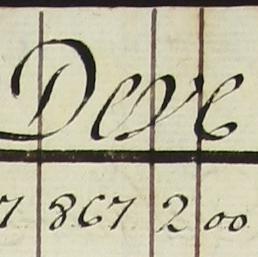 Deve
7 867 2 00